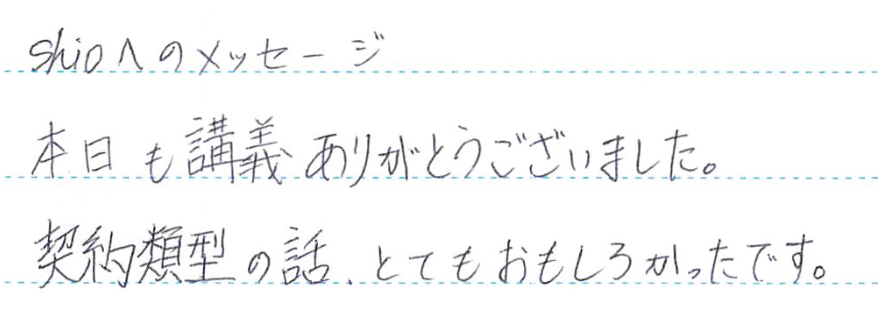 shioへのメッセージ
本日も講義ありがとうございました。
契約類型の話、とてもおもしろかったです。